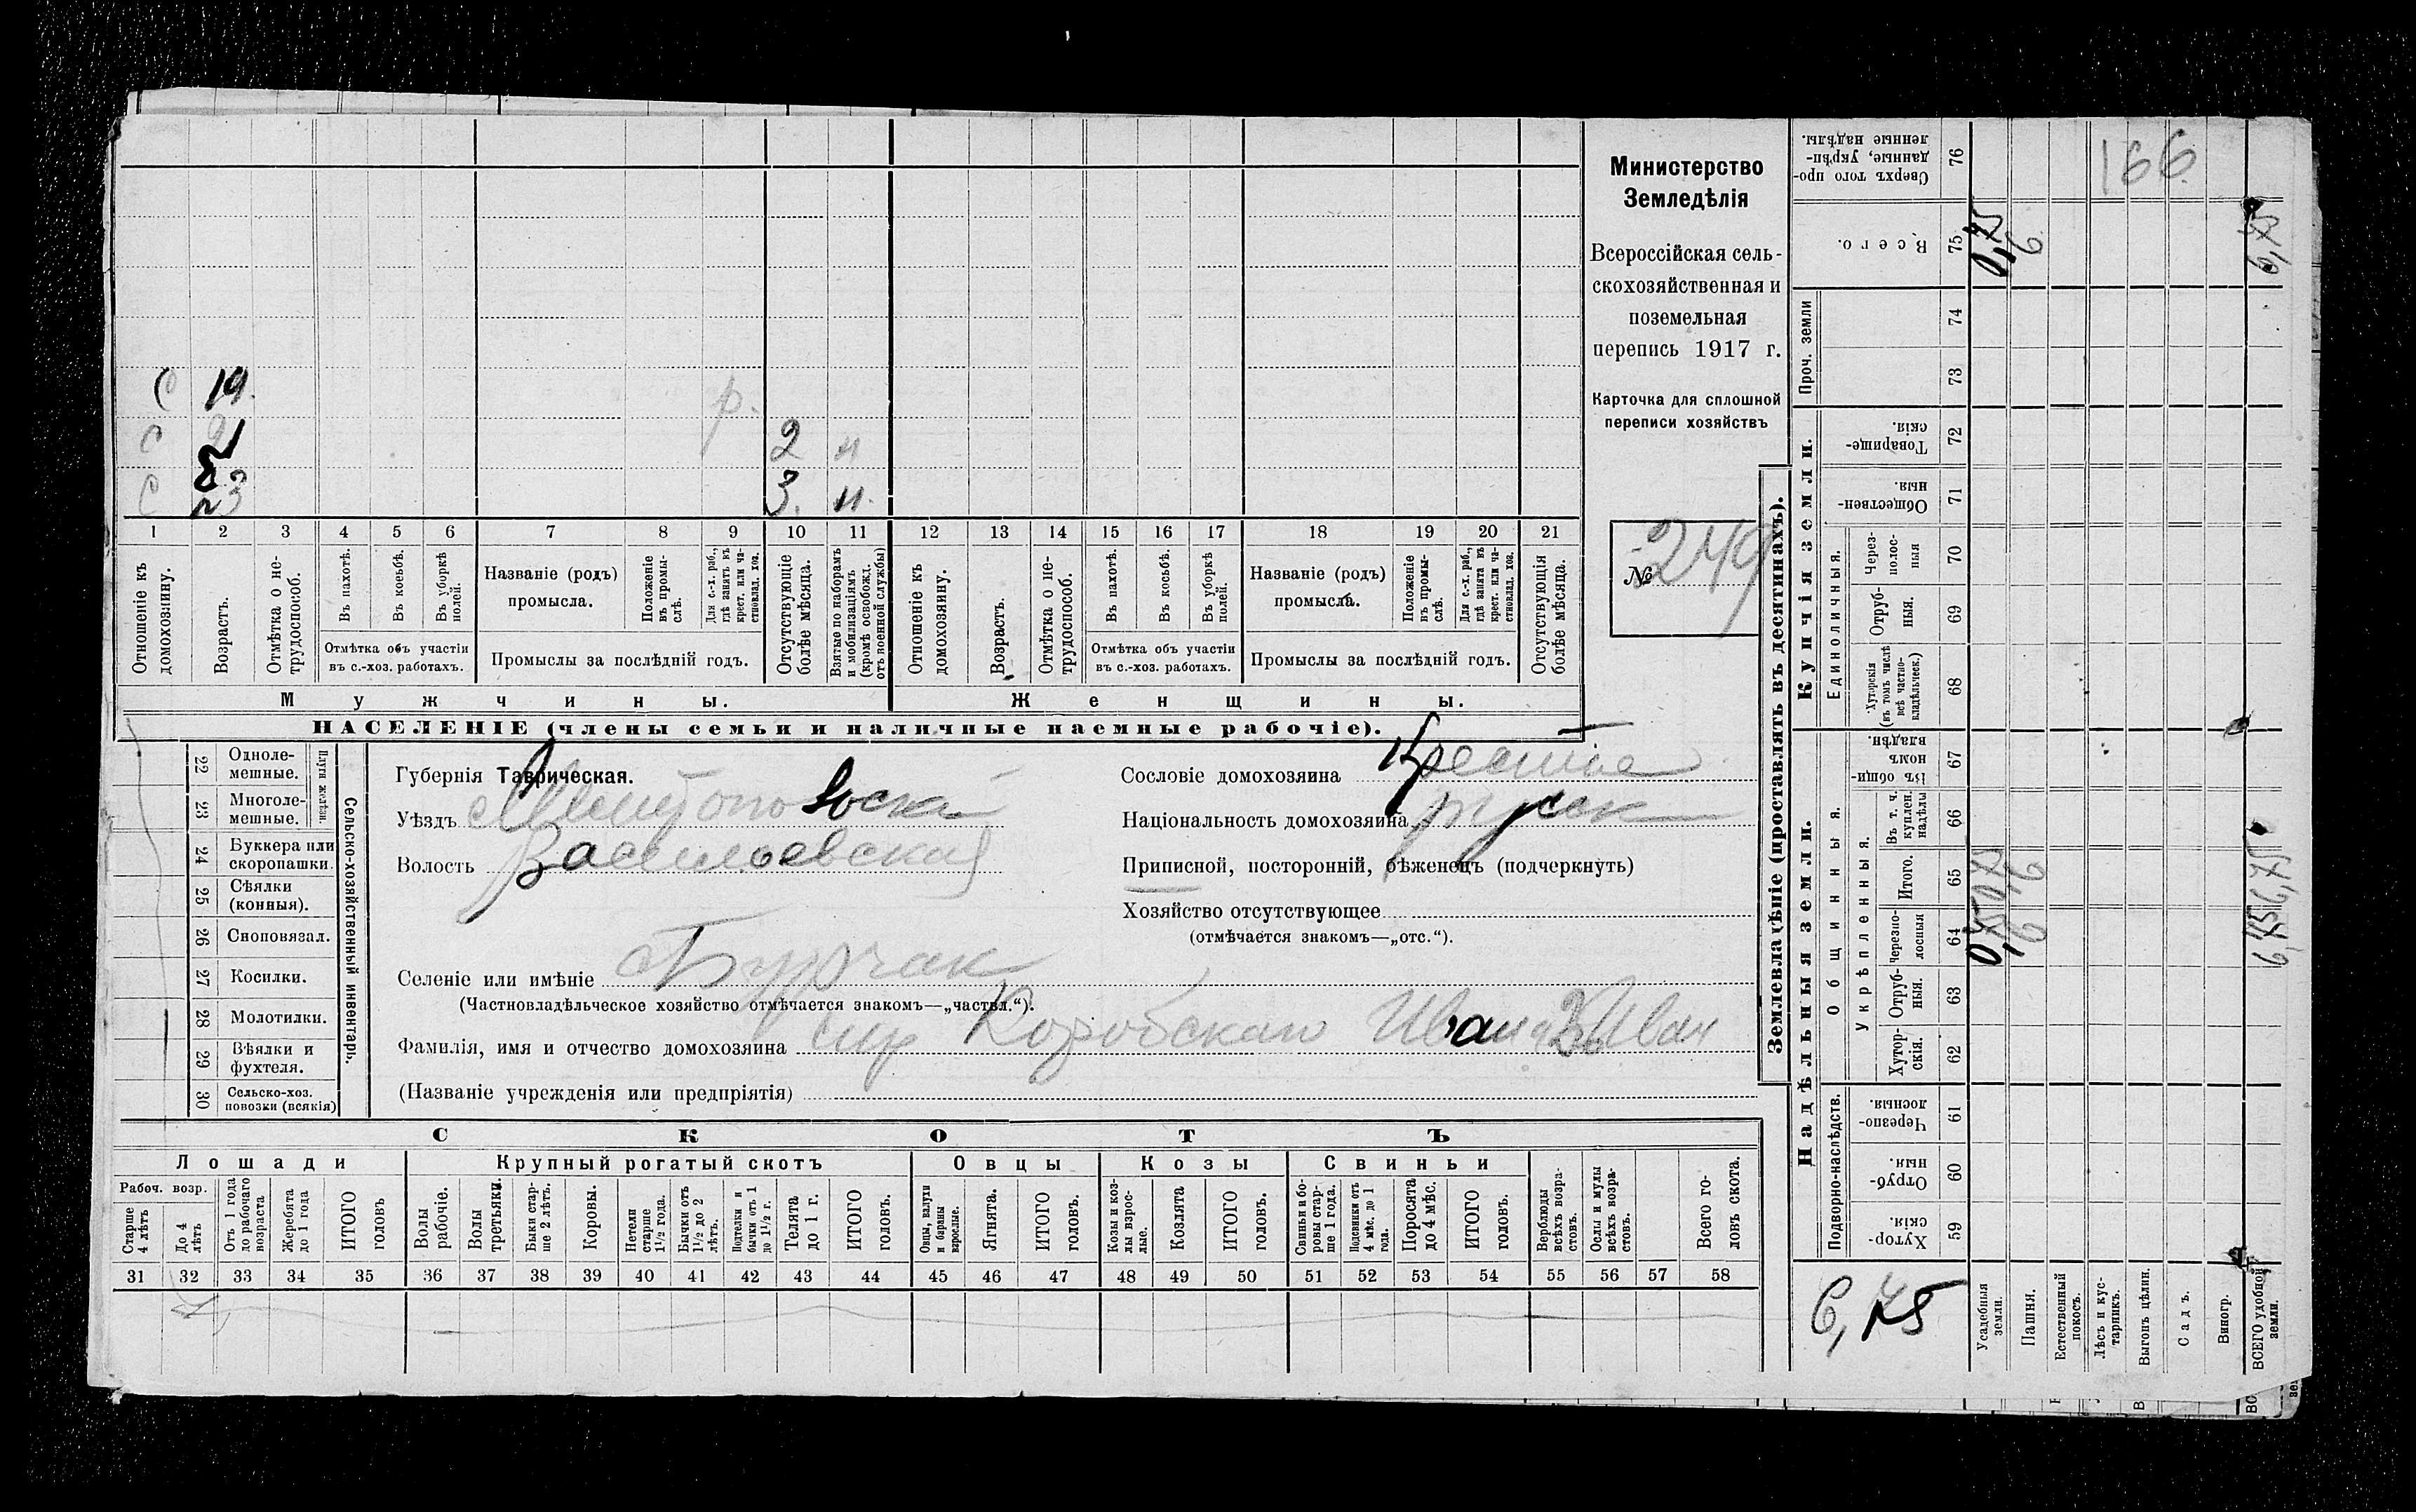 166
Министерство
Земледѣлія
Всероссійская сель-
скохозяйственная и
поземельная
перепись 1917 г.
Карточка для сплошной
переписи хозяйствъ
№ 249
С 19. р.
С 21 2 н
С 23 3. н.
1 2 3 4 5 6 7 8 9 10 11 12 13 14 15 16 17 18 19 20 21
Отношеніе къ домохозяину.
Возрастъ.
Отмѣтка о не-трудоспособ.
Въ пахотѣ.
Въ косьбѣ.
Въ уборкѣ полей.
Отмѣтка объ участіи
въ с.-хоз. работахъ.
Названіе (родъ)
промысла.
Положеніе въ промы-слѣ.
Для с.-х. раб., гдѣ занятъ въ крест. или ча-стновлад. хоз.
Промыслы за послѣдній годъ.
Отсутствующіе болѣе мѣсяца.
Взятые по наборамъ и мобилизаціямъ (кромѣ освобожд. отъ военной службы)
Отношеніе къ домохозяину.
Возрастъ.
Отмѣтка о не-трудоспособ.
Въ пахотѣ.
Въ косьбѣ.
Въ уборкѣ полей.
Отмѣтка объ участіи
въ с.-хоз. работахъ.
Названіе (родъ)
промысла.
Положеніе въ промы-слѣ.
Для с.-х. раб., гдѣ занята въ крест. или ча-стновлад. хоз.
Промыслы за послѣдній годъ.
Отсутствующія болѣе мѣсяца.
Мужчины. Женщины.
НАСЕЛЕНІЕ (члены семьи и наличные наемные рабочіе).
Сельско-хозяйственный инвентарь.
Плуги желѣзн.
22 Одноле-мешные.
23 Многоле-мешные.
24 Буккера или скоропашки.
25 Сѣялки (конныя).
26 Сноповязал.
27 Косилки.
28 Молотилки.
29 Вѣялки и фухтеля.
30 Сельско-хоз. повозки (всякія)
Губернія Таврическая.
Уѣздъ
Волость Васильевская
Селеніе или имѣніе Бурчак
(Частновладѣльческое хозяйство отмѣчается знакомъ—„частвл.“).
Фамилія, имя и отчество домохозяина Иван
(Названіе учрежденія или предпріятія)
Сословіе домохозяина
Національность домохозяина русск
Приписной, посторонній, бѣженецъ (подчеркнуть)
Хозяйство отсутствующее
(отмѣчается знакомъ—„отс.“).
СКОТЪ
Лошади Крупный рогатый скотъ Овцы Козы Свиньи
Рабоч. возр.
Старше 4 лѣтъ
До 4 лѣтъ
Отъ 1 года до рабочаго возраста
Жеребята до 1 года
ИТОГО головъ
Волы рабочіе.
Волы третьяки.
Быки стар-ше 2 лѣтъ.
Коровы.
Нетели старше 1½ года.
Бычки отъ 1½ до 2 лѣтъ.
Подтелки и бычки отъ 1 до 1½ г.
Телята до 1 г.
ИТОГО головъ.
Овцы, валухи и бараны взрослые.
Ягнята.
ИТОГО головъ.
Козы и коз-лы взрос-лые.
Козлята
ИТОГО головъ.
Свиньи и бо-ровы стар-ше 1 года.
Подсвинки отъ 4 мѣс. до 1 года.
Поросята до 4 мѣс.
ИТОГО головъ.
Верблюды всѣхъ возра-стовъ.
Ослы и мулы всѣхъ возра-стовъ.
Всего го-ловъ скота.
31 32 33 34 35 36 37 38 39 40 41 42 43 44 45 46 47 48 49 50 51 52 53 54 55 56 57 58
Землевладѣніе (проставлять въ десятинахъ).
Сверхъ того про-данные, укрѣп-ленные надѣлы. 76
Всего. 75 0,75 6 6,75
Проч. земли 74 73
Купчія земли.
Товарище-скія. 72
Обществен-ныя. 71
Единоличныя.
Через-полос-ныя 70
Отруб-ныя. 69
Хуторскія (въ томъ числѣ всѣ частно-владѣльческ.) 68
Надѣльныя земли.
Общинныя.
Въ общин-номъ владѣн. 67
Укрѣпленныя.
Въ т. ч. куплен. надѣлы 66
Итого. 65 0,75 6 6,75
Черезпо-лосныя 64 0,75 6 6,75
Отруб-ныя. 63
Хутор-скія. 62
Подворно-наслѣдств.
Черезпо-лосныя. 61
Отруб-ныя. 60
Хутор-скія. 59
6,75
Усадебныя земли.
Пашня.
Естественный покосъ.
Лѣсъ и кус-тарникъ.
Выгонъ цѣлин.
Садъ.
Виногр.
ВСЕГО удобной земли.